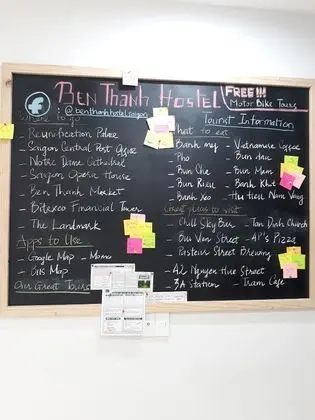 Ben Thanh Hostel
FREE!!!
Motor Bike Tours
@benthanhhostel.saigon
Where to go
- Reunification Palace
- Saigon Central Post Office
- Notre Dame Cathedral
- Saigon Opera House
- Ben Thanh Market
- Bitexco Financial Tower
- The Landmark
Apps to Use
- Google Map - Momo
- Map
Our Great Tours
Tourist Information
What to eat
Banh my
- Pho
- Bun Cha
- Bun Rieu
- Banh xeo
- Vietnamese Coffee
- Bun dau
- Bun Mam
- Banh Khot
- Hu tieu Nam Vang
Great place to visit
- Chill SkyBar
- Tan Dinh Church
- Bui Vien Street
- 4P's Pizza
- Pasteur Street Brewing
- 42 Nguyen Hue Street
- 3A Station
- Tram Cafe